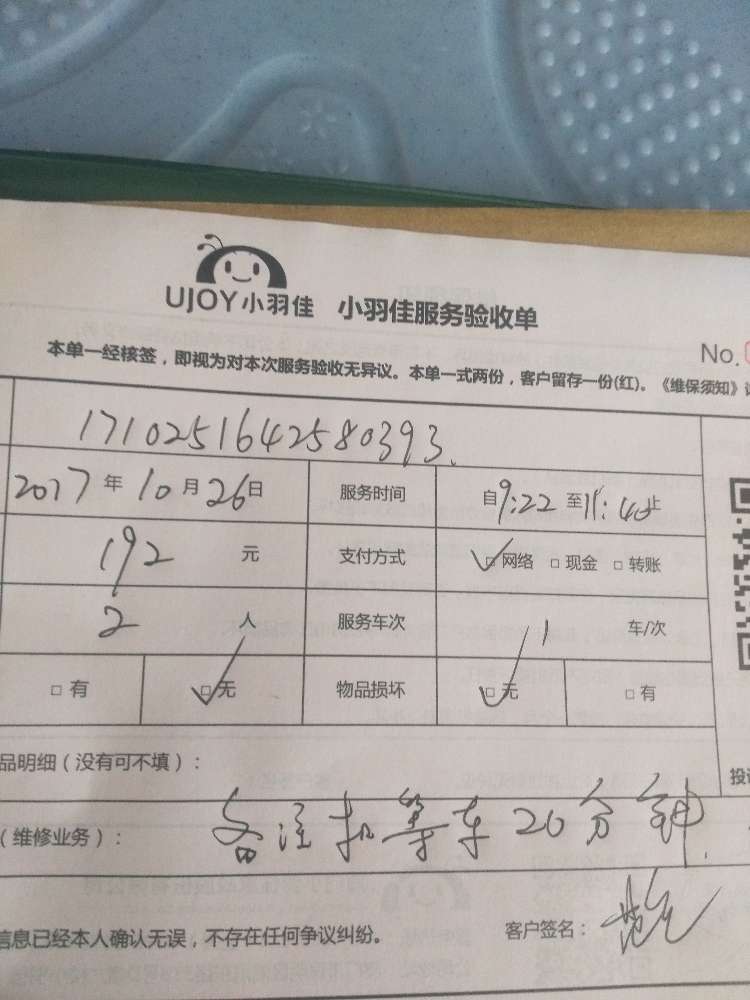 UJOY小羽佳 小羽佳服务验收单
No.
本单一经核签，即视为对本次服务验收无异议。本单一式两份，客户留存一份(红)。《维保须知》
1710251642580393
2017年10月26日 服务时间 自9:22至11:40止
192元 支付方式 网络 现金 转账
2人 服务车次 1车/次
有 无 物品损坏 无 有
品明细（没有可不填）：
（维修业务）： 备注扣等车20分钟.
信息已经本人确认无误，不存在任何争议纠纷。 客户签名：
投